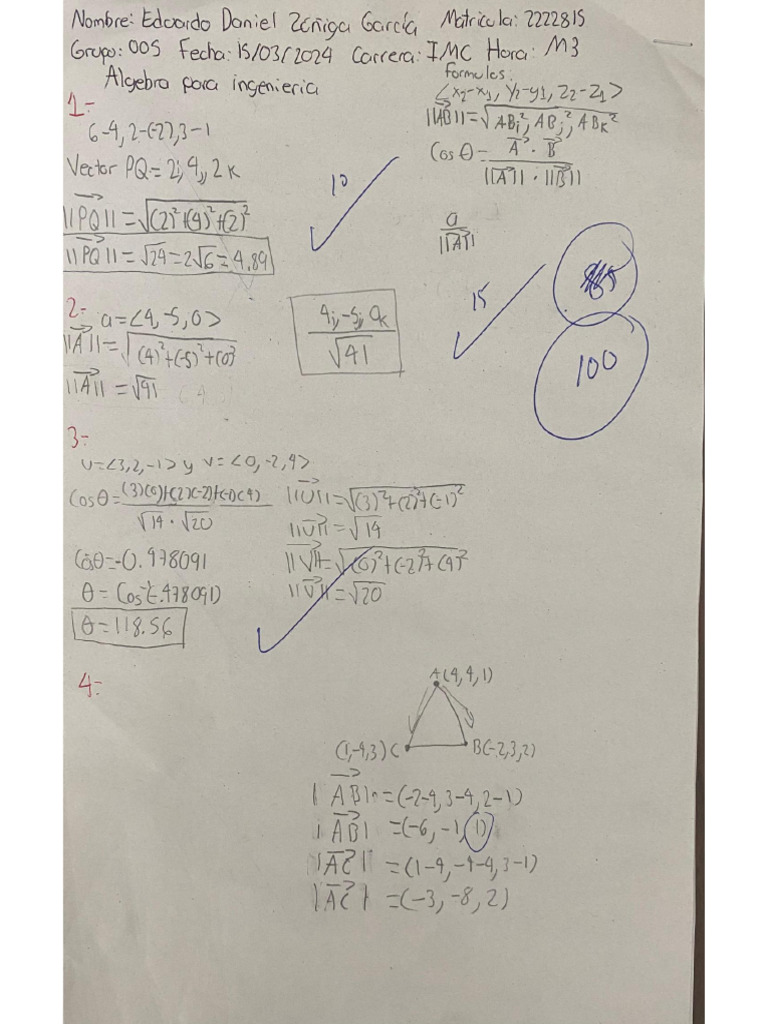 Nombre: Edoardo Daniel Zúñiga García Matricula: 2222815
Grupo: 005 Fecha: 15/03/2024 Carrera: IMC Hora: M3
Algebra para ingenieria
Formulas:
<x₂-x₁, y₂-y₁, z₂-z₁>
||AB|| = √ABi², ABj², ABk²
Cos θ = A · B / ||A|| · ||B||
a / ||A||
1-
6-4, 2-(-2), 3-1
Vector PQ = 2i, 4j, 2k
||PQ|| = √(2)²+(4)²+(2)²
||PQ|| = √24 = 2√6 = 4.89
10
2-
a = <4, -5, 0>
||A|| = √(4)²+(-5)²+(0)²
||A|| = √41
4i, -5j, 0k / √41
15
100
3-
u = <3, 2, -1> y v = <0, -2, 4>
Cos θ = (3)(0)+(2)(-2)+(-1)(4) / √14 · √20
Cos θ = -0.478091
θ = Cos⁻¹(-.478091)
θ = 118.56
||U|| = √(3)²+(2)²+(-1)²
||U|| = √14
||V|| = √(0)²+(-2)²+(4)²
||V|| = √20
4-
A(4, 4, 1)
(1, -4, 3) C
B(-2, 3, 2)
|AB| = (-2-4, 3-4, 2-1)
|AB| = (-6, -1, 1)
|AC| = (1-4, -4-4, 3-1)
|AC| = (-3, -8, 2)